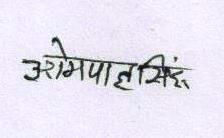 ओमपाल सिंह